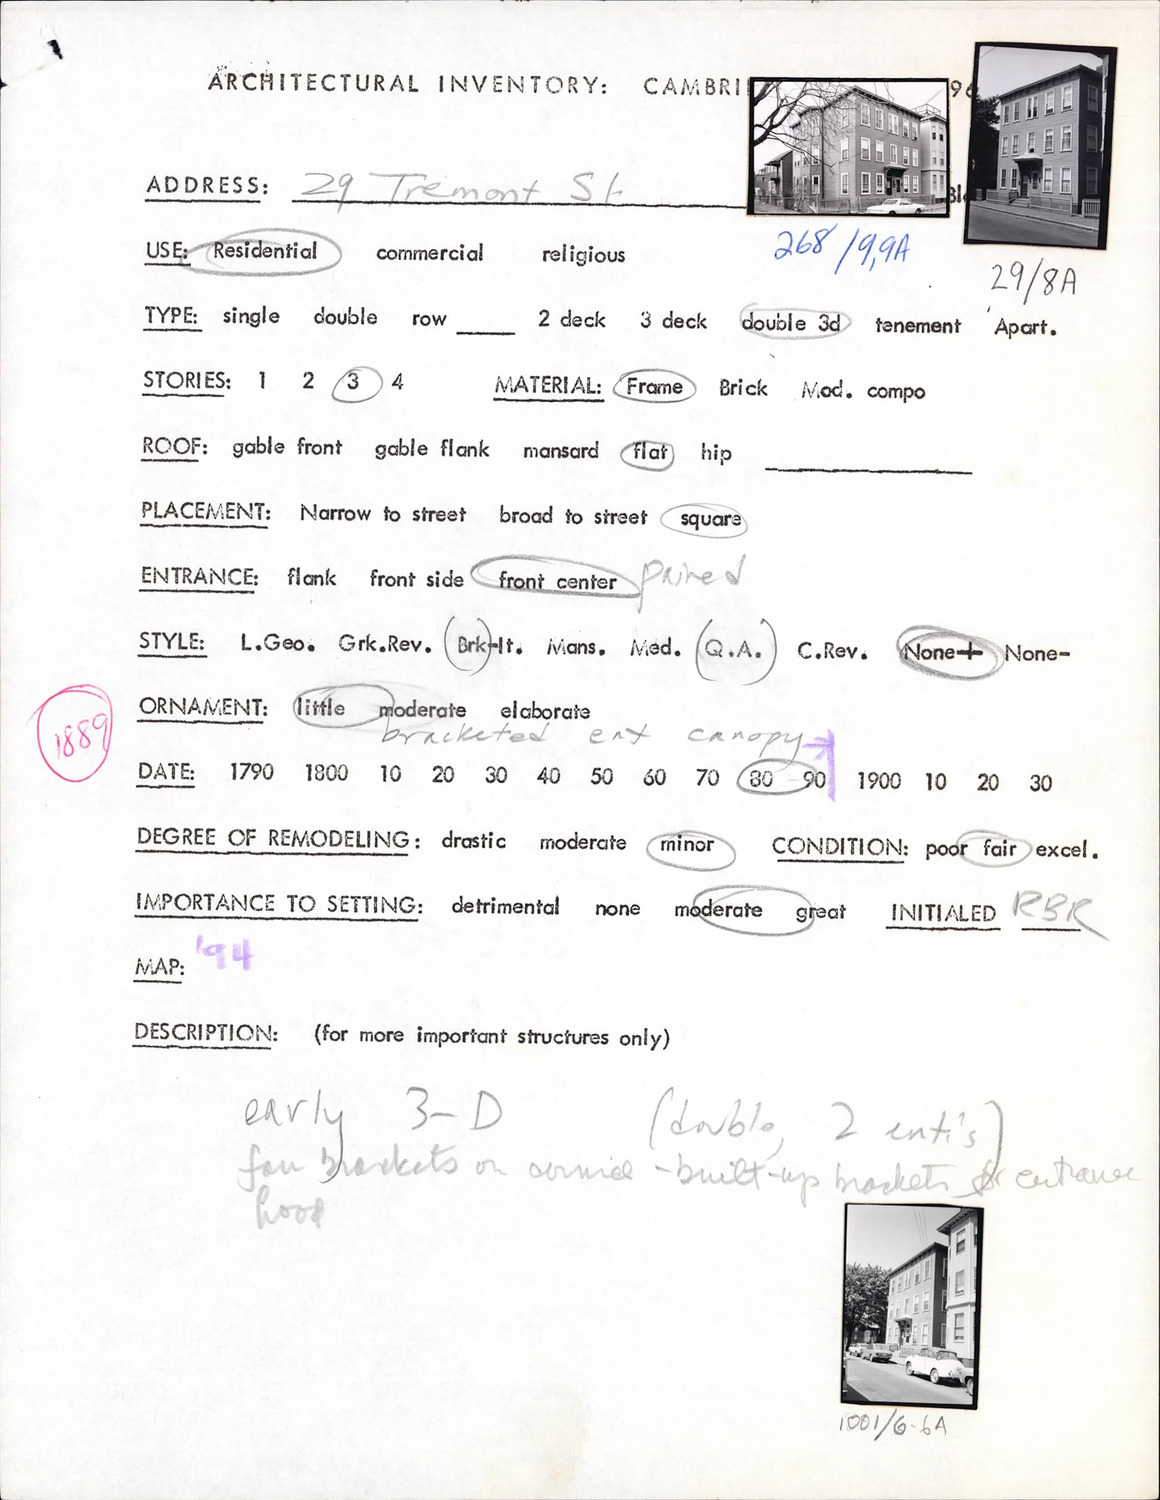 ARCHITECTURAL INVENTORY: CAMBRI 96
ADDRESS: 29 Tremont St Bl
268/9,9A
29/8A
USE: Residential commercial religious
TYPE: single double row ____ 2 deck 3 deck double 3d tenement Apart.
STORIES: 1 2 3 4 MATERIAL: Frame Brick Mod. compo
ROOF: gable front gable flank mansard flat hip ____
PLACEMENT: Narrow to street broad to street square
ENTRANCE: flank front side front center paired
STYLE: L.Geo. Grk.Rev. (Brk)-It. Mans. Med. (Q.A.) C.Rev. None+ None-
ORNAMENT: little moderate elaborate
bracketed ent canopy
1889
DATE: 1790 1800 10 20 30 40 50 60 70 80 90 1900 10 20 30
DEGREE OF REMODELING: drastic moderate minor CONDITION: poor fair excel.
IMPORTANCE TO SETTING: detrimental none moderate great INITIALED RBR
MAP: '94
DESCRIPTION: (for more important structures only)
early 3-D (double, 2 ent's)
fan brackets on cornice - built-up brackets for entrance
hood
1001/6-6A